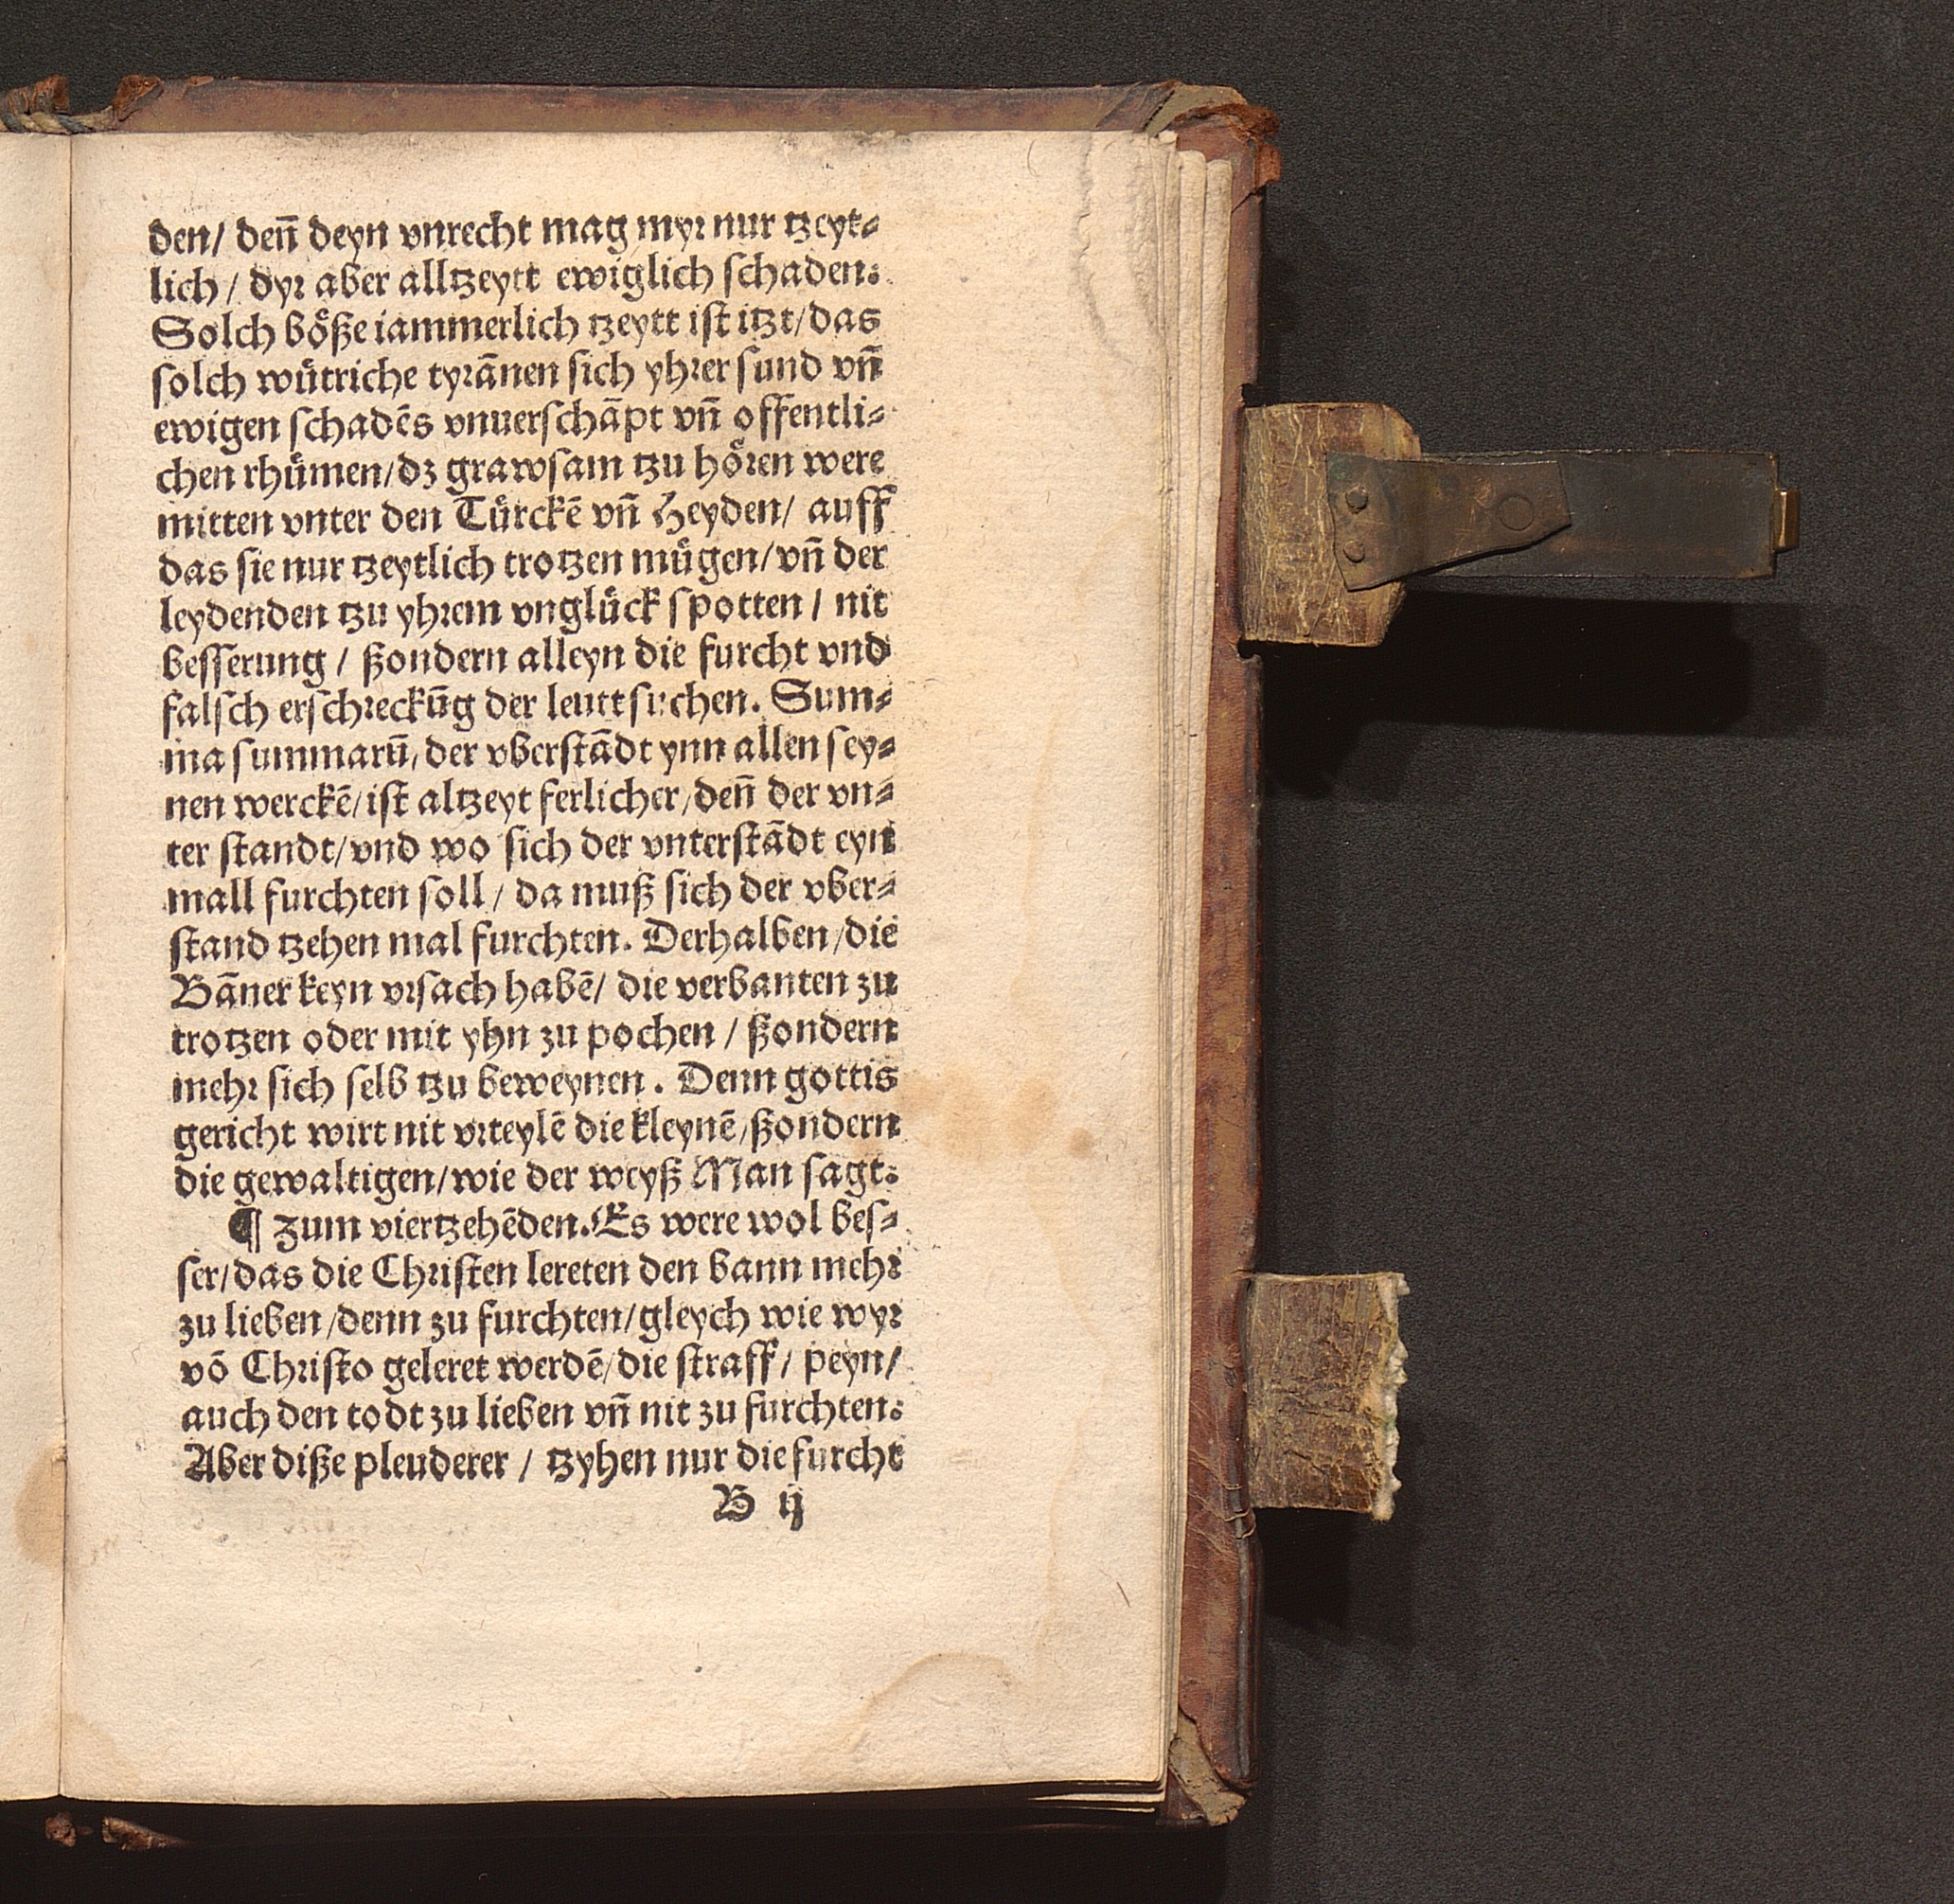 den/ deñ deyn vnrecht mag myr nur tzeyt⸗
lich/ dyr aber alltzeytt ewiglich schaden.
Solch boͤße iammerlich tzeytt ist itzt/das
solch wuͤtriche tyrãnen sich yhrer sund vñ
ewigen schadẽs vnuerschãpt vñ offentli⸗
chen rhuͤmen/dz grawsam tzu hoͤren were
mitten vnter den Tuͤrckẽ vñ Heyden/ auff
das sie nur tzeytlich trotzen muͤgen/vñ der
leydenden tzu yhrem vngluͤck spotten/ nit
besserung/ ßondern alleyn die furcht vnd
falsch erschreckũg der leutt suchen. Sum⸗
ma summarũ/der vberstãdt ynn allen sey⸗
nen werckẽ/ist altzeyt ferlicher/deñ der vn⸗
ter standt/vnd wo sich der vnterstãdt eyn
mall furchten soll/ da muß sich der vber⸗
stand tzehen mal furchten. Derhalben/die
Bãner keyn vrsach habẽ/ die verbanten zu
trotzen oder mit yhn zu pochen/ ßondern
mehr sich selb tzu beweynen. Denn gottis
gericht wirt nit vrteylẽ die kleynẽ/ßondern
die gewaltigen/wie der weyß Man sagt.
¶ Zum viertzehẽden. Es were wol bes⸗
ser/das die Christen lereten den bann mehr
zu lieben/denn zu furchten/gleych wie wyr
võ Christo geleret werdẽ/die straff/ peyn/
auch den todt zu lieben vñ nit zu furchten.
Aber diße pleuderer/ tzyhen nur die furcht
B ij